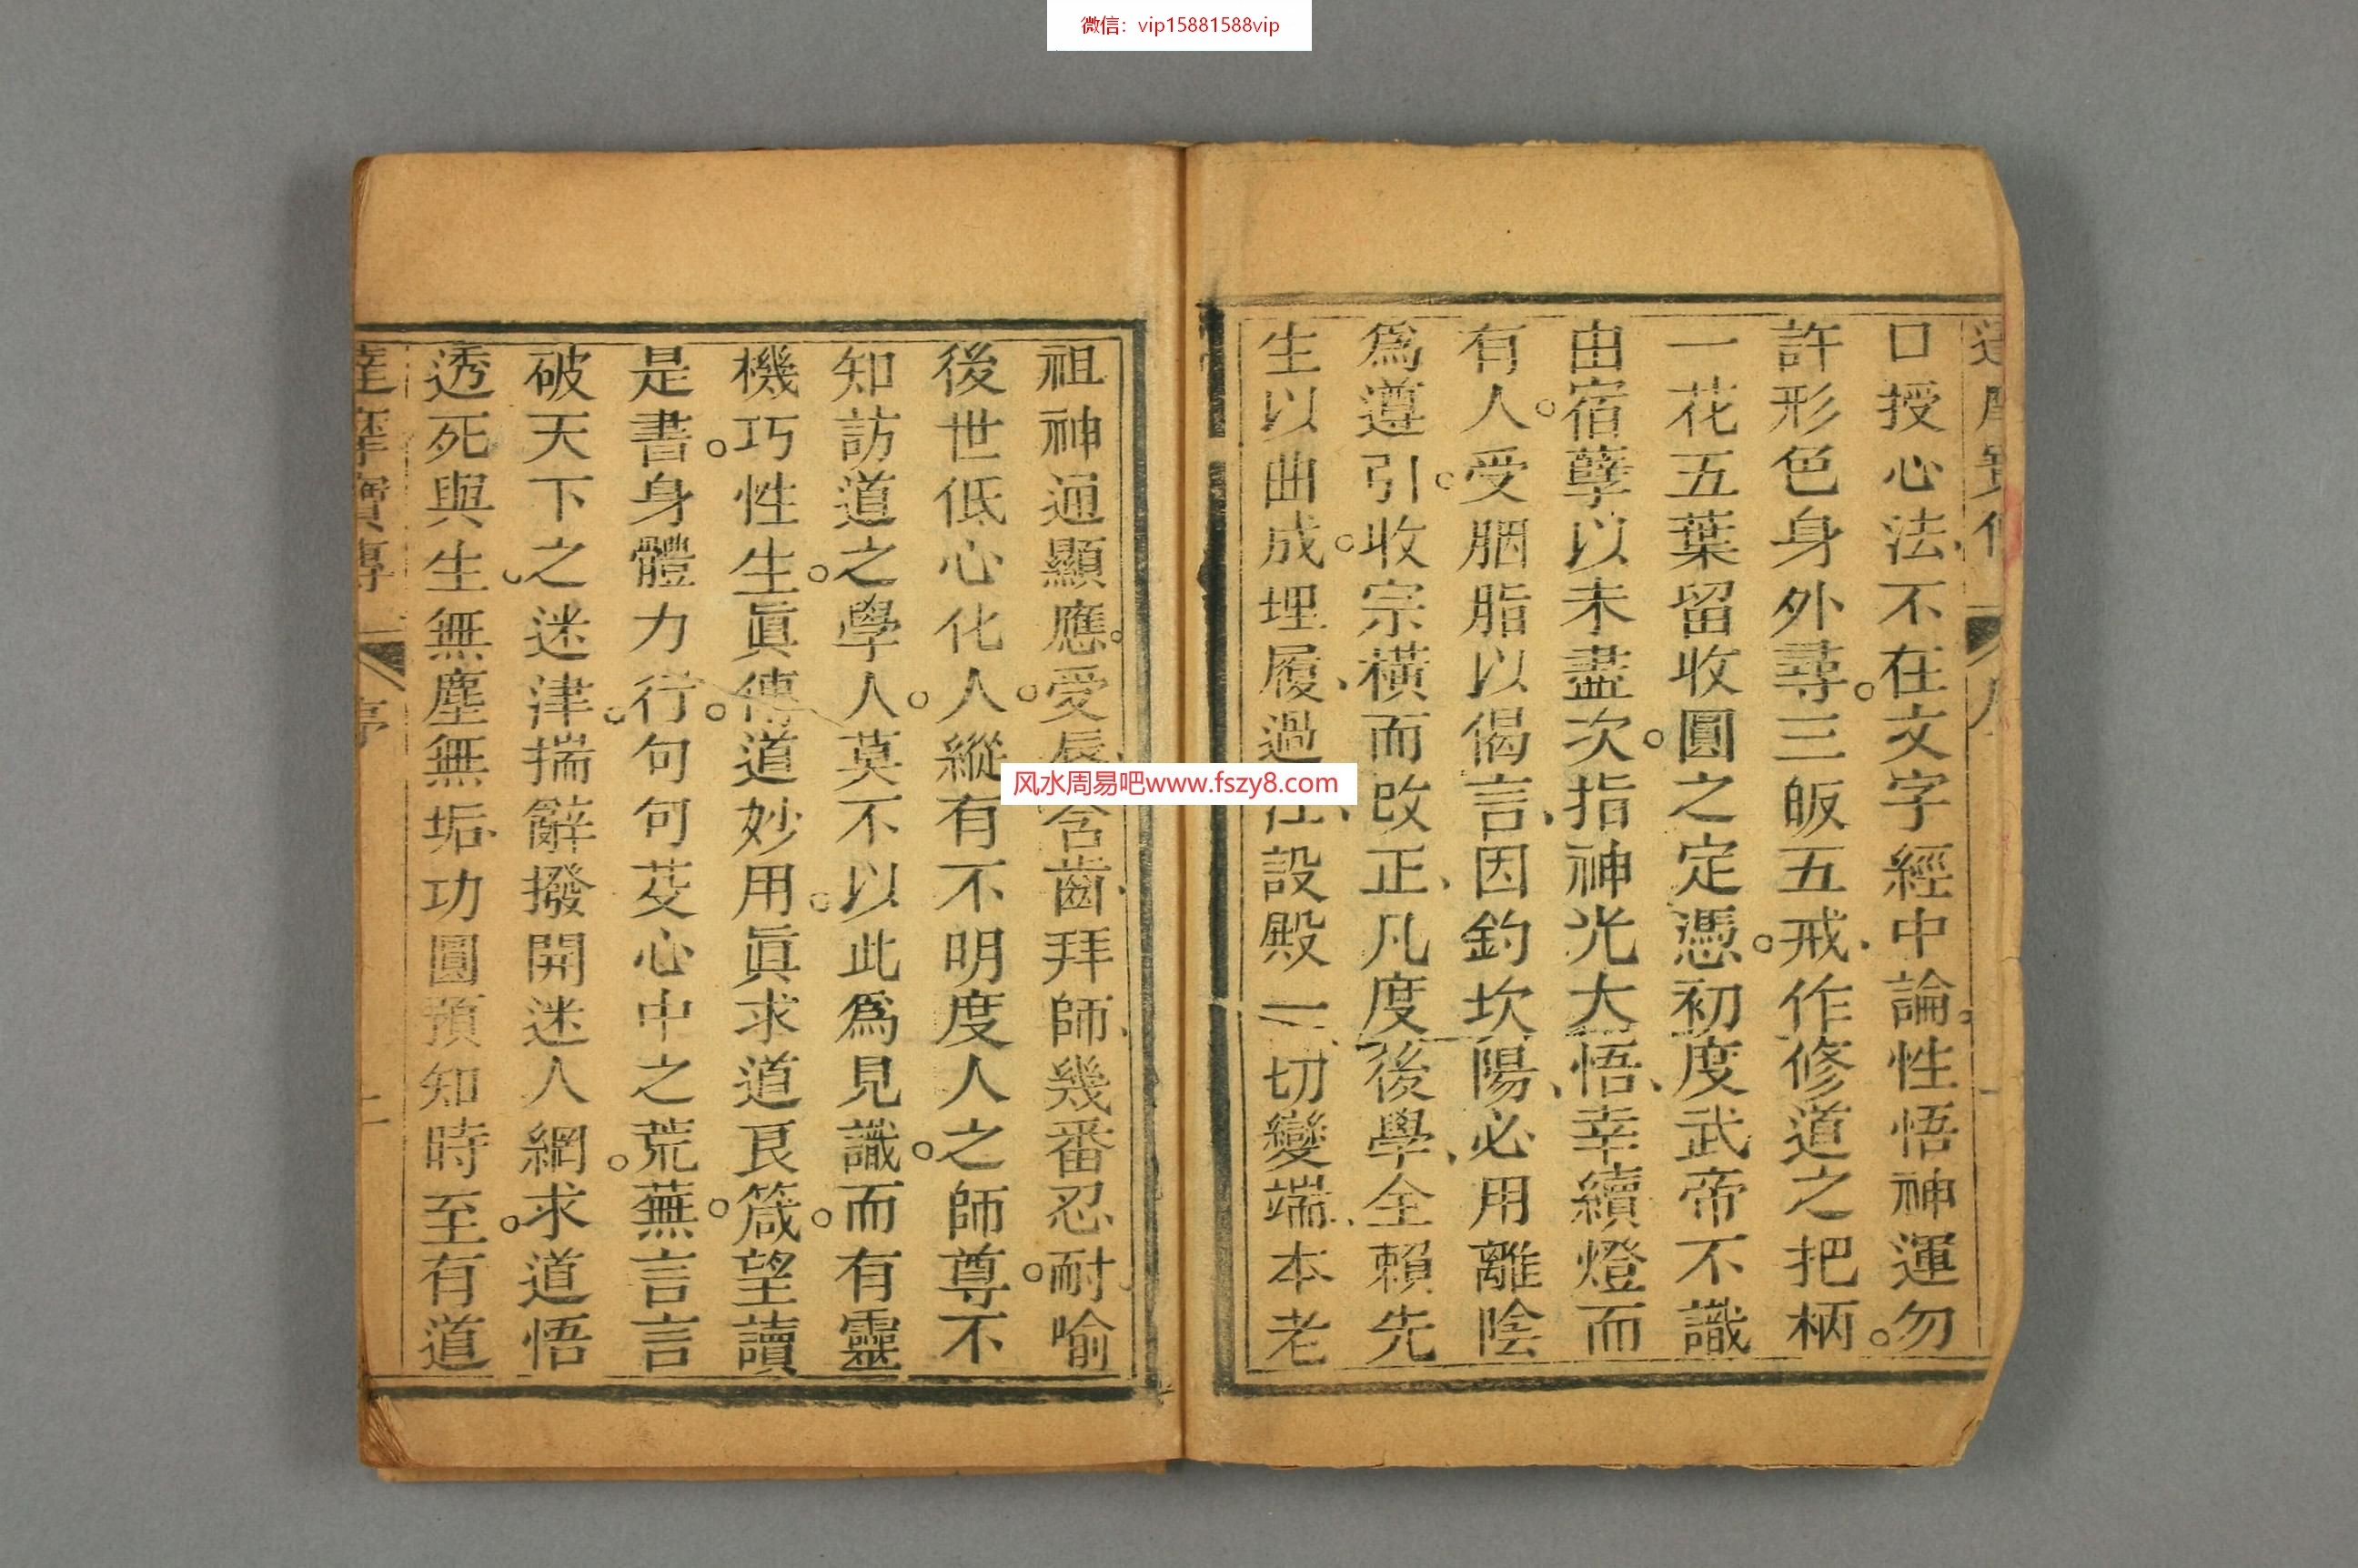 微信：vip15881588vip
口授心法、不在文字經中論。性悟神運勿
許形色身外尋。三皈五戒、作修道之把柄。
一花五葉留收圓之定憑。初度武帝不識
由宿孽以未盡次。指神光大悟、幸續燈而
有人。受胭脂以偈言、因釣坎陽、必用離陰
為遵引。收宗橫而改正、凡度後學、全賴先
生以曲成。埋履、過 設殿一切變端、本老
风水周易吧www.fszy8.com
祖神通顯應。受 含齒、拜師、幾番忍耐、喻
後世低心化人。縱有不明度人之師尊。不
知訪道之學人。莫不以此為見識。而有靈
機巧性生。眞傳道妙用。眞求道艮箴。望讀
是書。身體力行。句句芟心中之荒蕪。言言
破天下之迷津。揣辭撥開迷人網。求道悟
透死與生、無塵無垢、功圓預知時至。有道
達摩寶傳 序